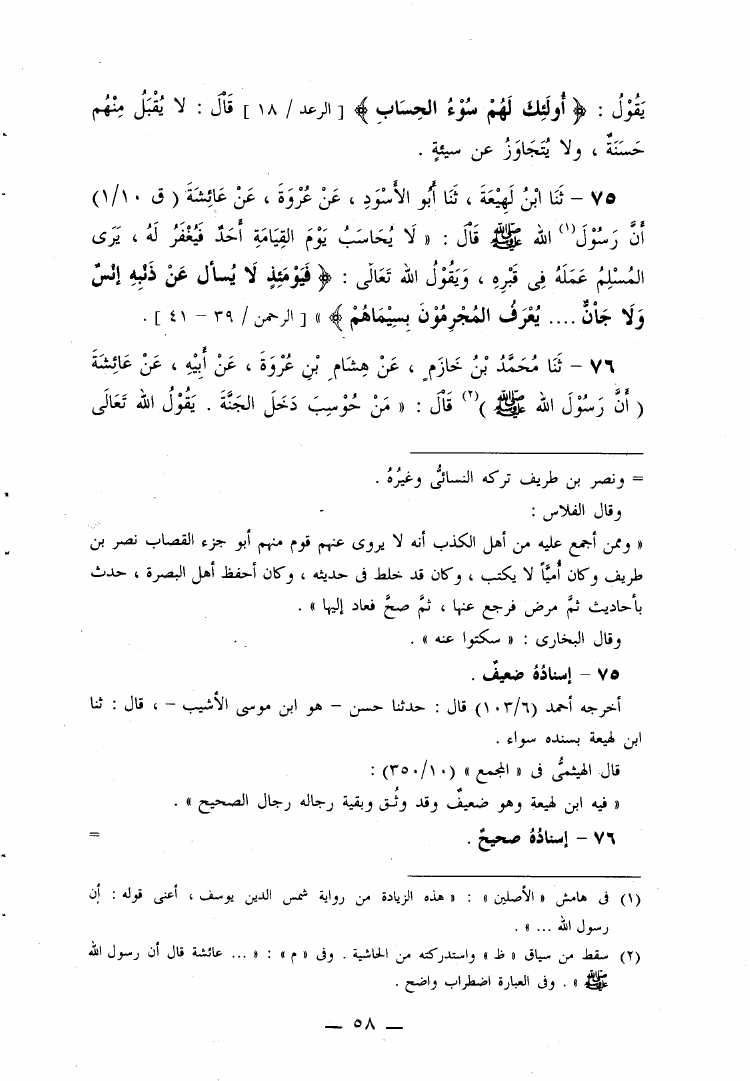 يَقُوْلُ : ﴿ أُولَئِكَ لَهُمْ سُوْءُ الحِسَابِ ﴾ [ الرعد / ١٨ ] قَاْلَ : لا يُقْبَلُ مِنْهُم
حَسَنَةٌ ، ولا يُتَجَاوَزُ عن سيئةٍ .
٧٥ – ثَنَا ابْنُ لَهِيْعَةَ ، ثَنَا أَبُو الأَسْوَدِ ، عَنْ عُرْوَةَ ، عَنْ عَائِشَةَ ( ق ١/١٠ )
أَنَّ رَسُوْلَ(١) الله ﷺ قَاْلَ : « لَا يُحَاسَبُ يَوْمَ القِيَامَةِ أَحَدٌ فَيُغْفَرُ لَهُ ، يَرَى
المُسْلِمُ عَمَلَهُ فِى قَبْرِهِ ، وَيَقُوْلُ الله تَعَالَى : ﴿ فَيَوْمَئِذٍ لَا يُسأل عَنْ ذَنْبِهِ إنْسٌ
وَلَا جَاْنٌّ .... يُعْرَفُ المُجْرِمُوْنَ بِسِيْمَاهُمْ ﴾ » [ الرحمن / ٣٩ – ٤١ ] .
٧٦ – ثَنَا مُحَمَّدُ بْنُ خَازِمٍ ، عَنْ هِشَامِ بْنِ عُرْوَةَ ، عَنْ أَبِيْهِ ، عَنْ عَائِشَةَ
( أَنَّ رَسُوْلَ الله ﷺ )(٢) قَاْلَ : « مَنْ حُوْسِبَ دَخَلَ الجَنَّةَ . يَقُوْلُ الله تَعَالَى
= ونصر بن طريف تركه النسائىُّ وغيرُهُ .
وقال الفلاس :
« وممن أجمع عليه من أهل الكذب أنه لا يروى عنهم قوم منهم أبو جزء القصاب نصر بن
طريف وكان أُميَّاً لا يكتب ، وكان قد خلط فى حديثه ، وكان أحفظ أهل البصرة ، حدث
بأحاديث ثمَّ مرض فرجع عنها ، ثمَّ صحَّ فعاد إليها » .
وقال البخارى : « سكتوا عنه » .
٧٥ – إسنادُهُ ضعيفٌ .
أخرجه أحمد (١٠٣/٦) قال : حدثنا حسن – هو ابن موسى الأشيب – ، قال : ثنا
ابن لهيعة بسنده سواء .
قال الهيثمىُّ فى « المجمع » (٣٥٠/١٠) :
« فيه ابن لهيعة وهو ضعيفٌ وقد وثُـق وبقية رجاله رجال الصحيح » .
٧٦ – إسنادُهُ صحيحٌ . =
(١) فى هامش « الأصلين » : « هذه الزيادة من رواية شمس الدين يوسف ، أعنى قوله : أن
رسول الله ... » .
(٢) سقط من سياق « ظ » واستدركته من الحاشية . وفى « م » : « ... عائشة قال أن رسول الله
ﷺ » . وفى العبارة اضطراب واضح .
— ٥٨ —